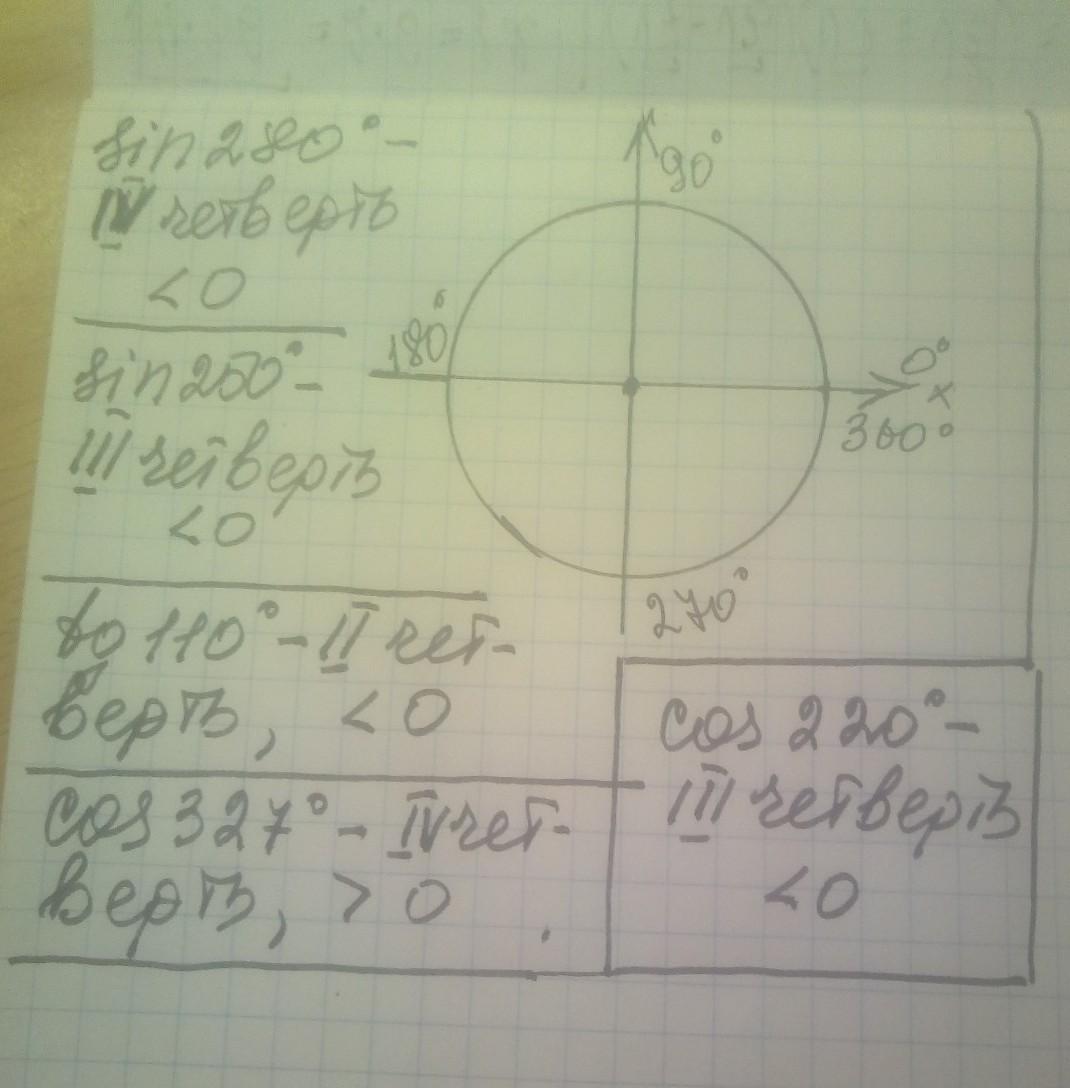 sin 280° -
IV четверть
< 0
sin 250° -
III четверть
< 0
tg 110° - II чет-
верть, < 0
cos 327° - IV чет-
верть, > 0
90°
180°
0°
x
360°
270°
cos 220° -
III четверть
< 0